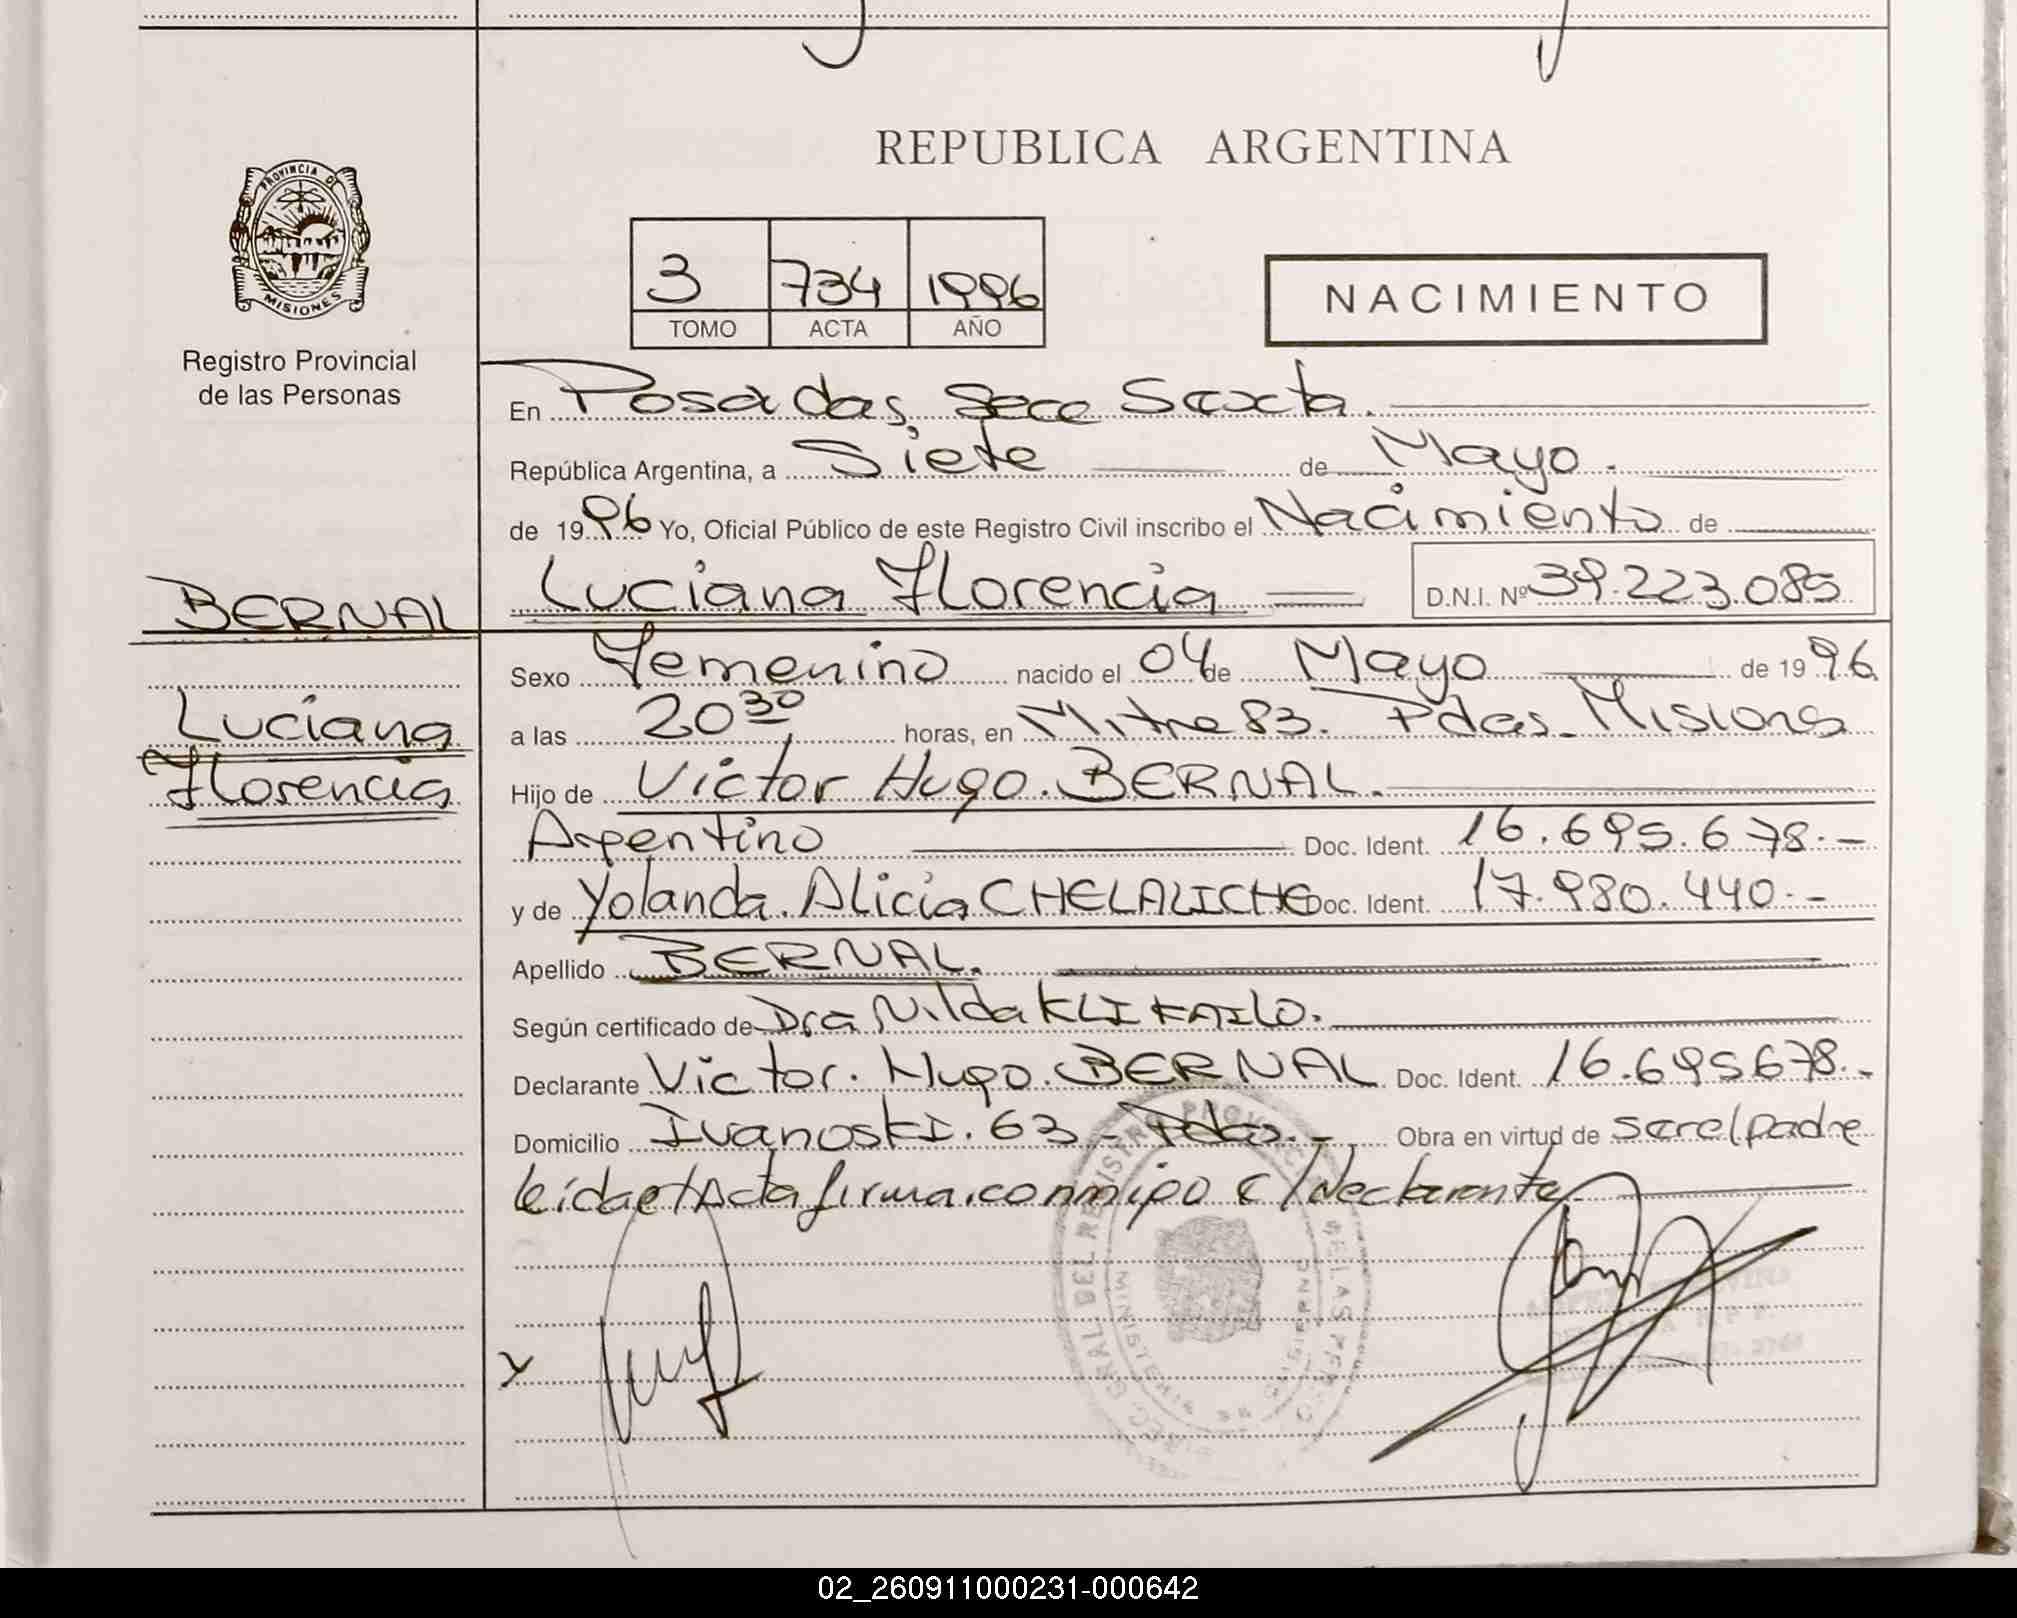 PROVINCIA DE
MISIONES
Registro Provincial
de las Personas
REPUBLICA ARGENTINA
3 734 1996
TOMO ACTA AÑO
NACIMIENTO
En Posadas, Secc Sexta.
República Argentina, a Siete de Mayo.
de 1996 Yo, Oficial Público de este Registro Civil inscribo el Nacimiento de
BERNAL
Luciana Florencia D.N.I. Nº 39.223.085
Sexo Femenino nacido el 04 de Mayo de 1996
Luciana
a las 20 30 horas, en Mitre 83. Pdas. Misiones
Florencia
Hijo de Victor Hugo. BERNAL.
Argentino Doc. Ident. 16.695.678.-
y de Yolanda. Alicia CHELALICHE Doc. Ident. 17.980.440.-
Apellido BERNAL.
Según certificado de Dra Nilda
Declarante Victor. Hugo. BERNAL Doc. Ident. 16.695678.-
Domicilio Ivanoski. 63 - Pdas. - Obra en virtud de ser el padre
leida el Acta firma conmigo e/declarante.
02_260911000231-000642